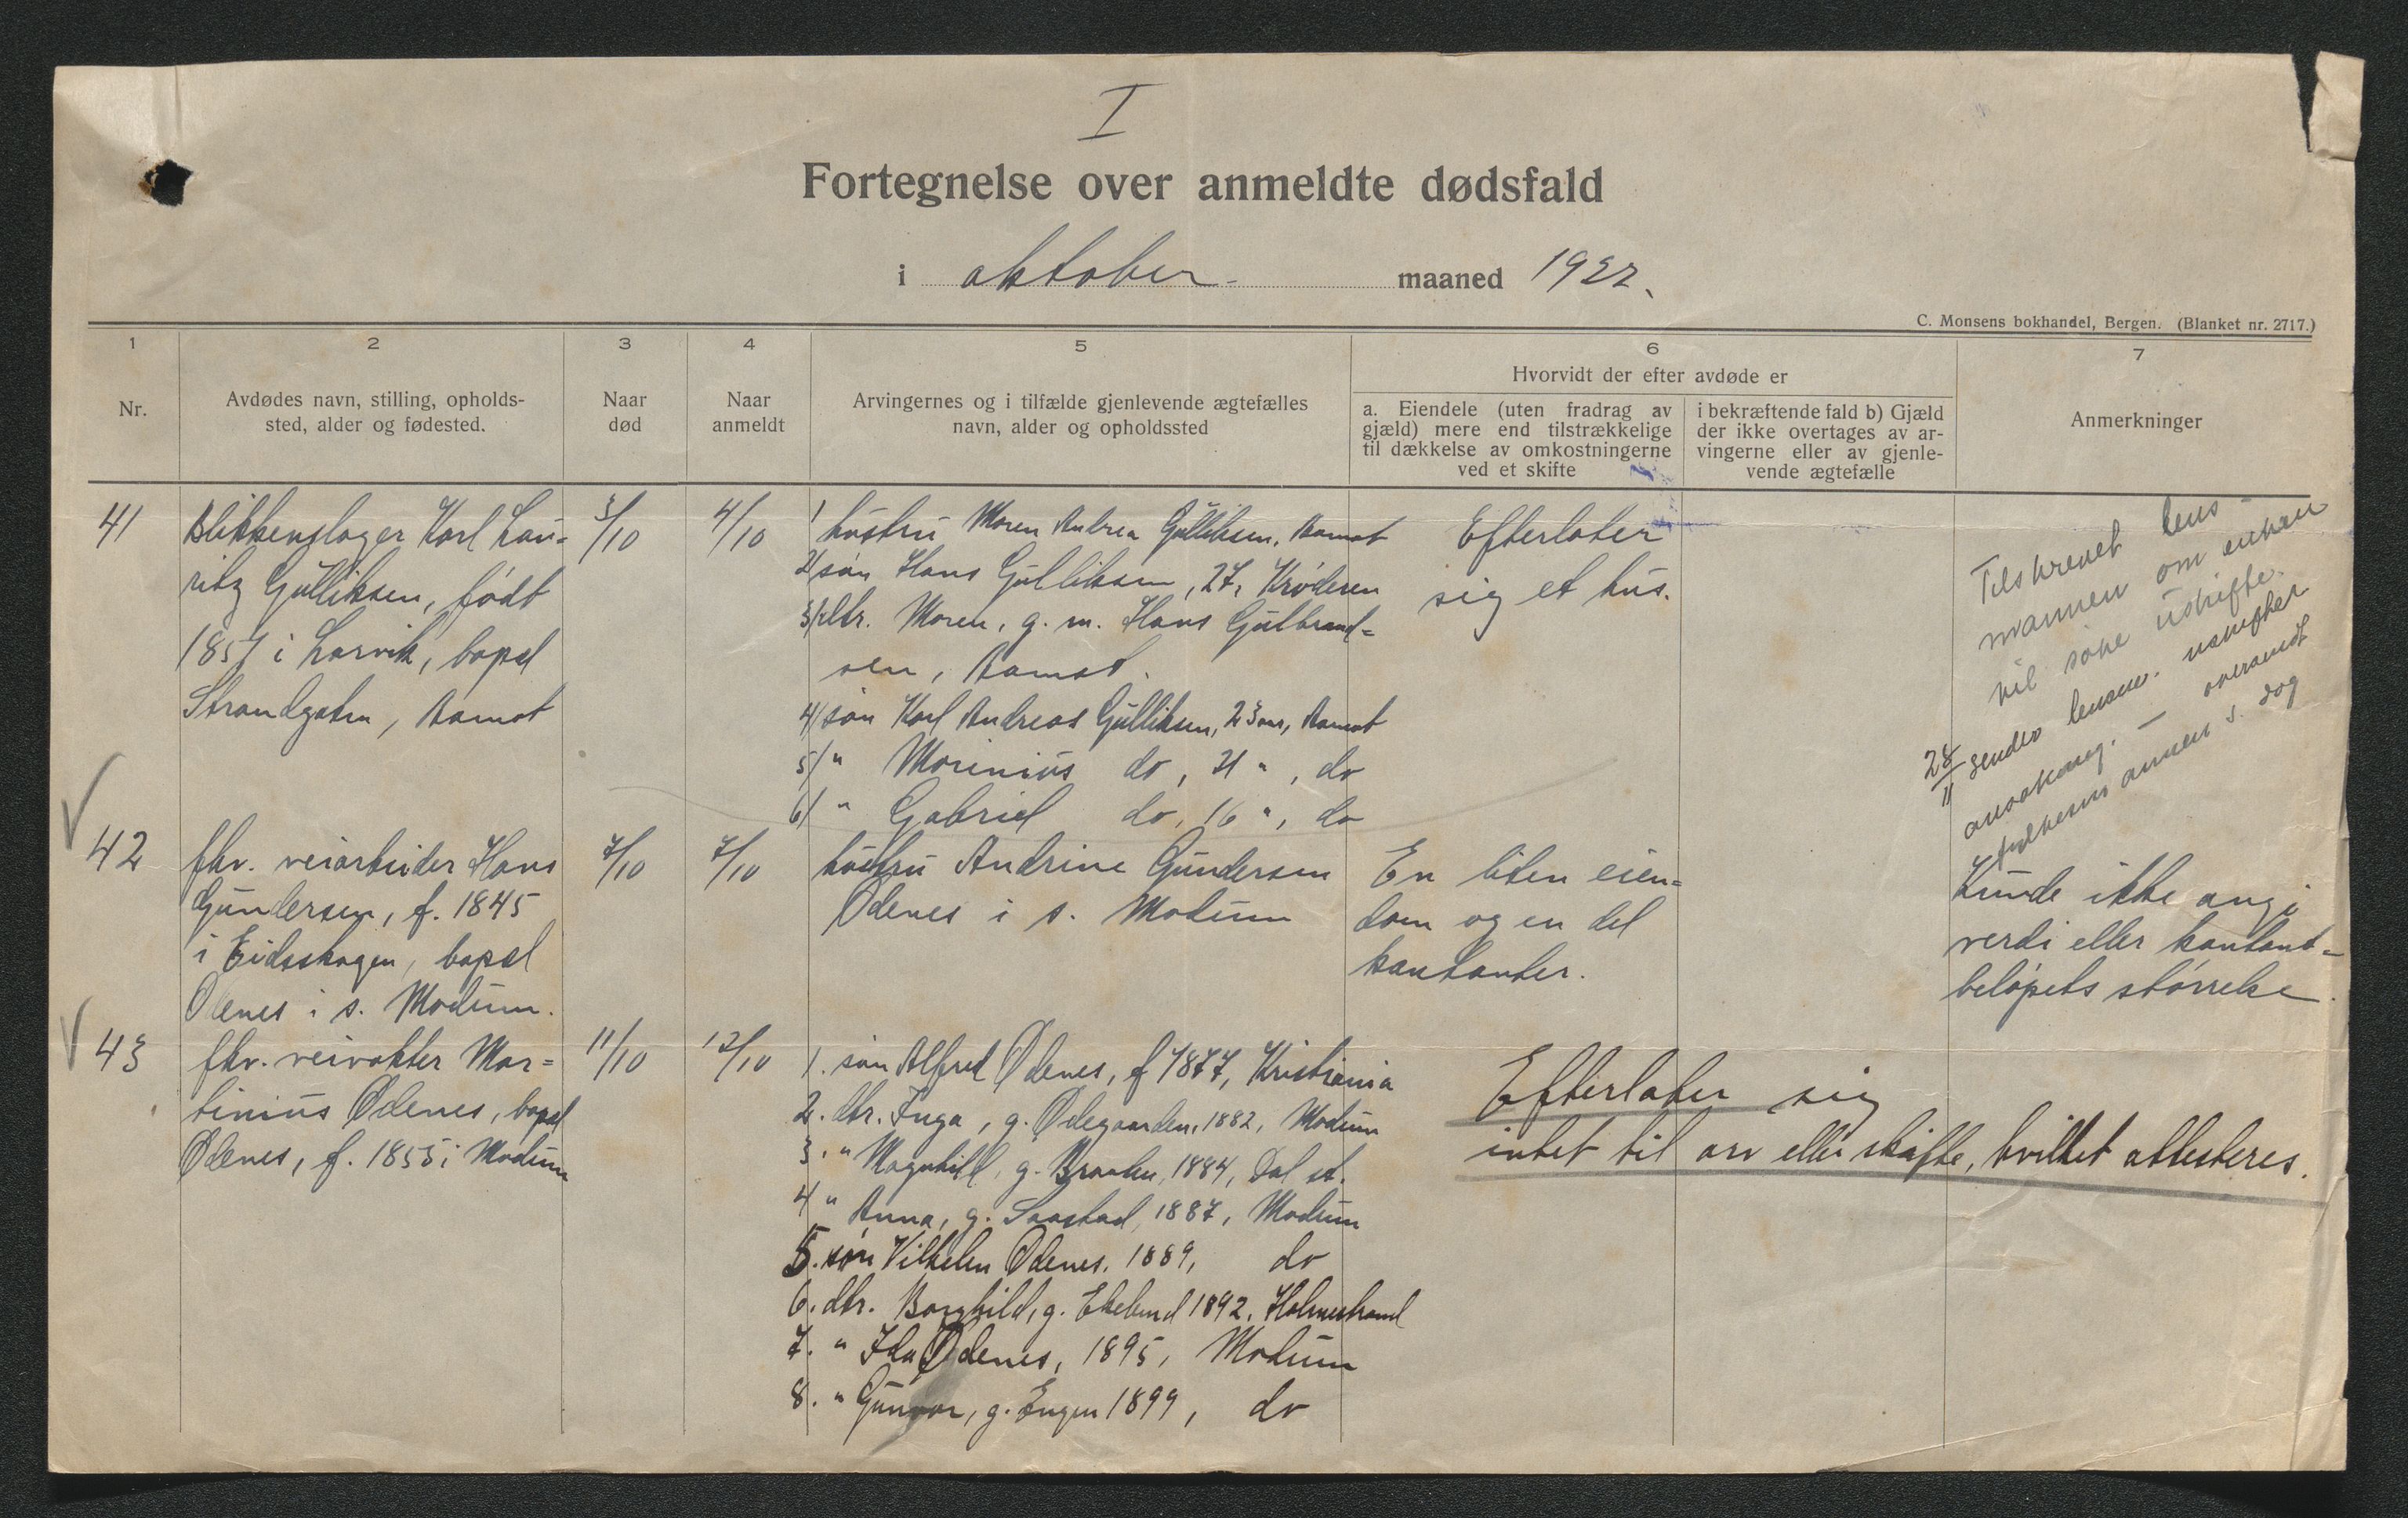 I
Fortegnelse over anmeldte dødsfald
i oktober maaned 1922.
C. Monsens bokhandel, Bergen. (Blanket nr. 2717.)
1
Nr.
2
Avdødes navn, stilling, opholds-
sted, alder og fødested.
3
Naar
død
4
Naar
anmeldt
5
Arvingernes og i tilfælde gjenlevende ægtefælles
navn, alder og opholdssted
6
Hvorvidt der efter avdøde er
a. Eiendele (uten fradrag av
gjæld) mere end tilstrækkelige
til dækkelse av omkostningerne
ved et skifte
i bekræftende fald b) Gjæld
der ikke overtages av ar-
vingerne eller av gjenle-
vende ægtefælle
7
Anmerkninger
41
Blikkenslager Karl Lau=
ritz Gulliksen, født
1857 i Larvik, bopel
Strandgaten, Aamot
3/10
4/10
1 hustru Maren Andrea Gulliksen, Aamot
2/ søn Hans Gulliksen, 27, Krøderen
3/ dtr. Maren, g. m. Hans Gulbrand=
sen, Aamot.
4/ søn Karl Andreas Gulliksen, 23 aar, Aamot
5/ " Marinius do, 21 ", do
6/ " Gabriel do, 16 ", do
Efterlater
sig et hus.
Tilskrevet lens-
mannen om enken
vil søke uskifte.
28/11 sender lensm. uskifte
ansøkning. — oversendt
s. dag
42
fhv. veiarbeider Hans
Gundersen, f. 1845
i Eidsskogen, bopel
Ødenes i s. Modum.
7/10
7/10
hustru Andrine Gundersen
Ødenes i s. Modum
En liten eien=
dom og en del
kontanter.
Kunde ikke angi
verdi eller kontant=
beløpets størrelse.
43
fhv. veivokter Mar=
tinius Ødenes, bopel
Ødenes, f. 1855 i Modum
11/10
12/10
1. søn Alfred Ødenes, f 1877, Kristiania
2. dtr. Inga, g. Ødegaarden, 1882, Modum
3. " Magnhild, g. Braaten, 1884, Dal st.
4 " Anna, g. Saastad, 1887, Modum
5. søn Vilhelm Ødenes. 1889, do
6. dtr. Borghild, g. Ekelund 1892, Holmestrand
7. " Ida Ødenes, 1895, Modum
8. " Gunvor, g. Engen 1899, do
Efterlater sig
intet til arv eller skifte, hvilket attesteres.